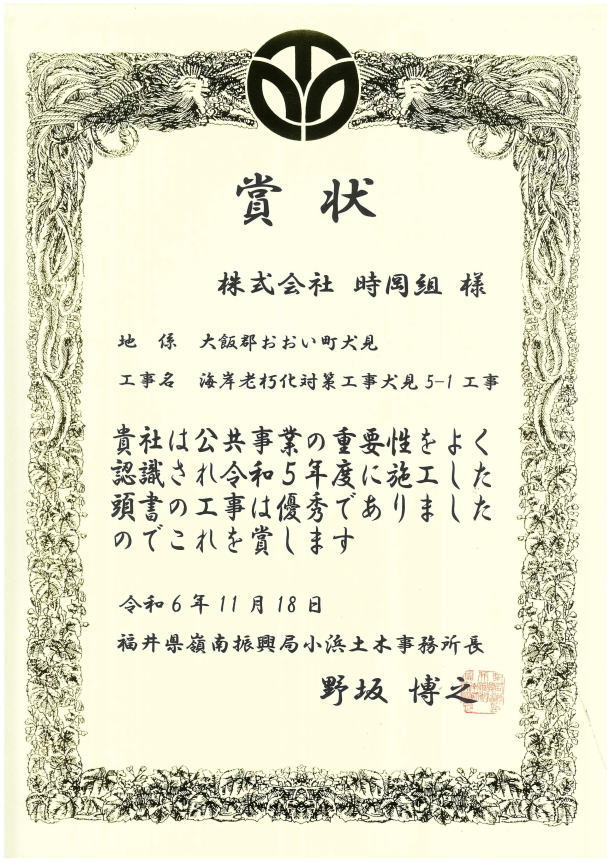 賞状
株式会社 時岡組 様
地 係 大飯郡おおい町犬見
工事名 海岸老朽化対策工事犬見5-1工事
貴社は公共事業の重要性をよく
認識され令和5年度に施工した
頭書の工事は優秀でありました
のでこれを賞します
令和6年11月18日
福井県嶺南振興局小浜土木事務所長
野坂 博之